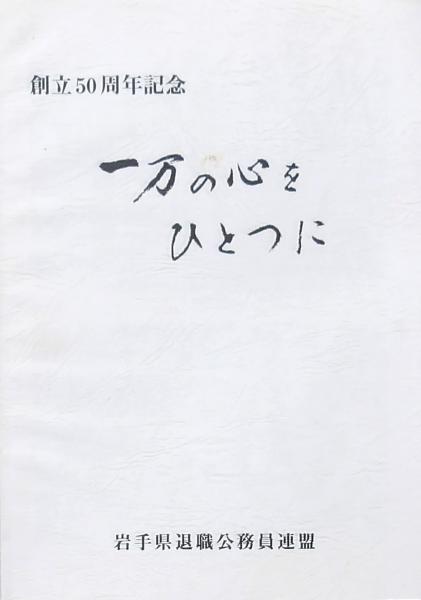 創立50周年記念
一万の心を
ひとつに
岩手県退職公務員連盟